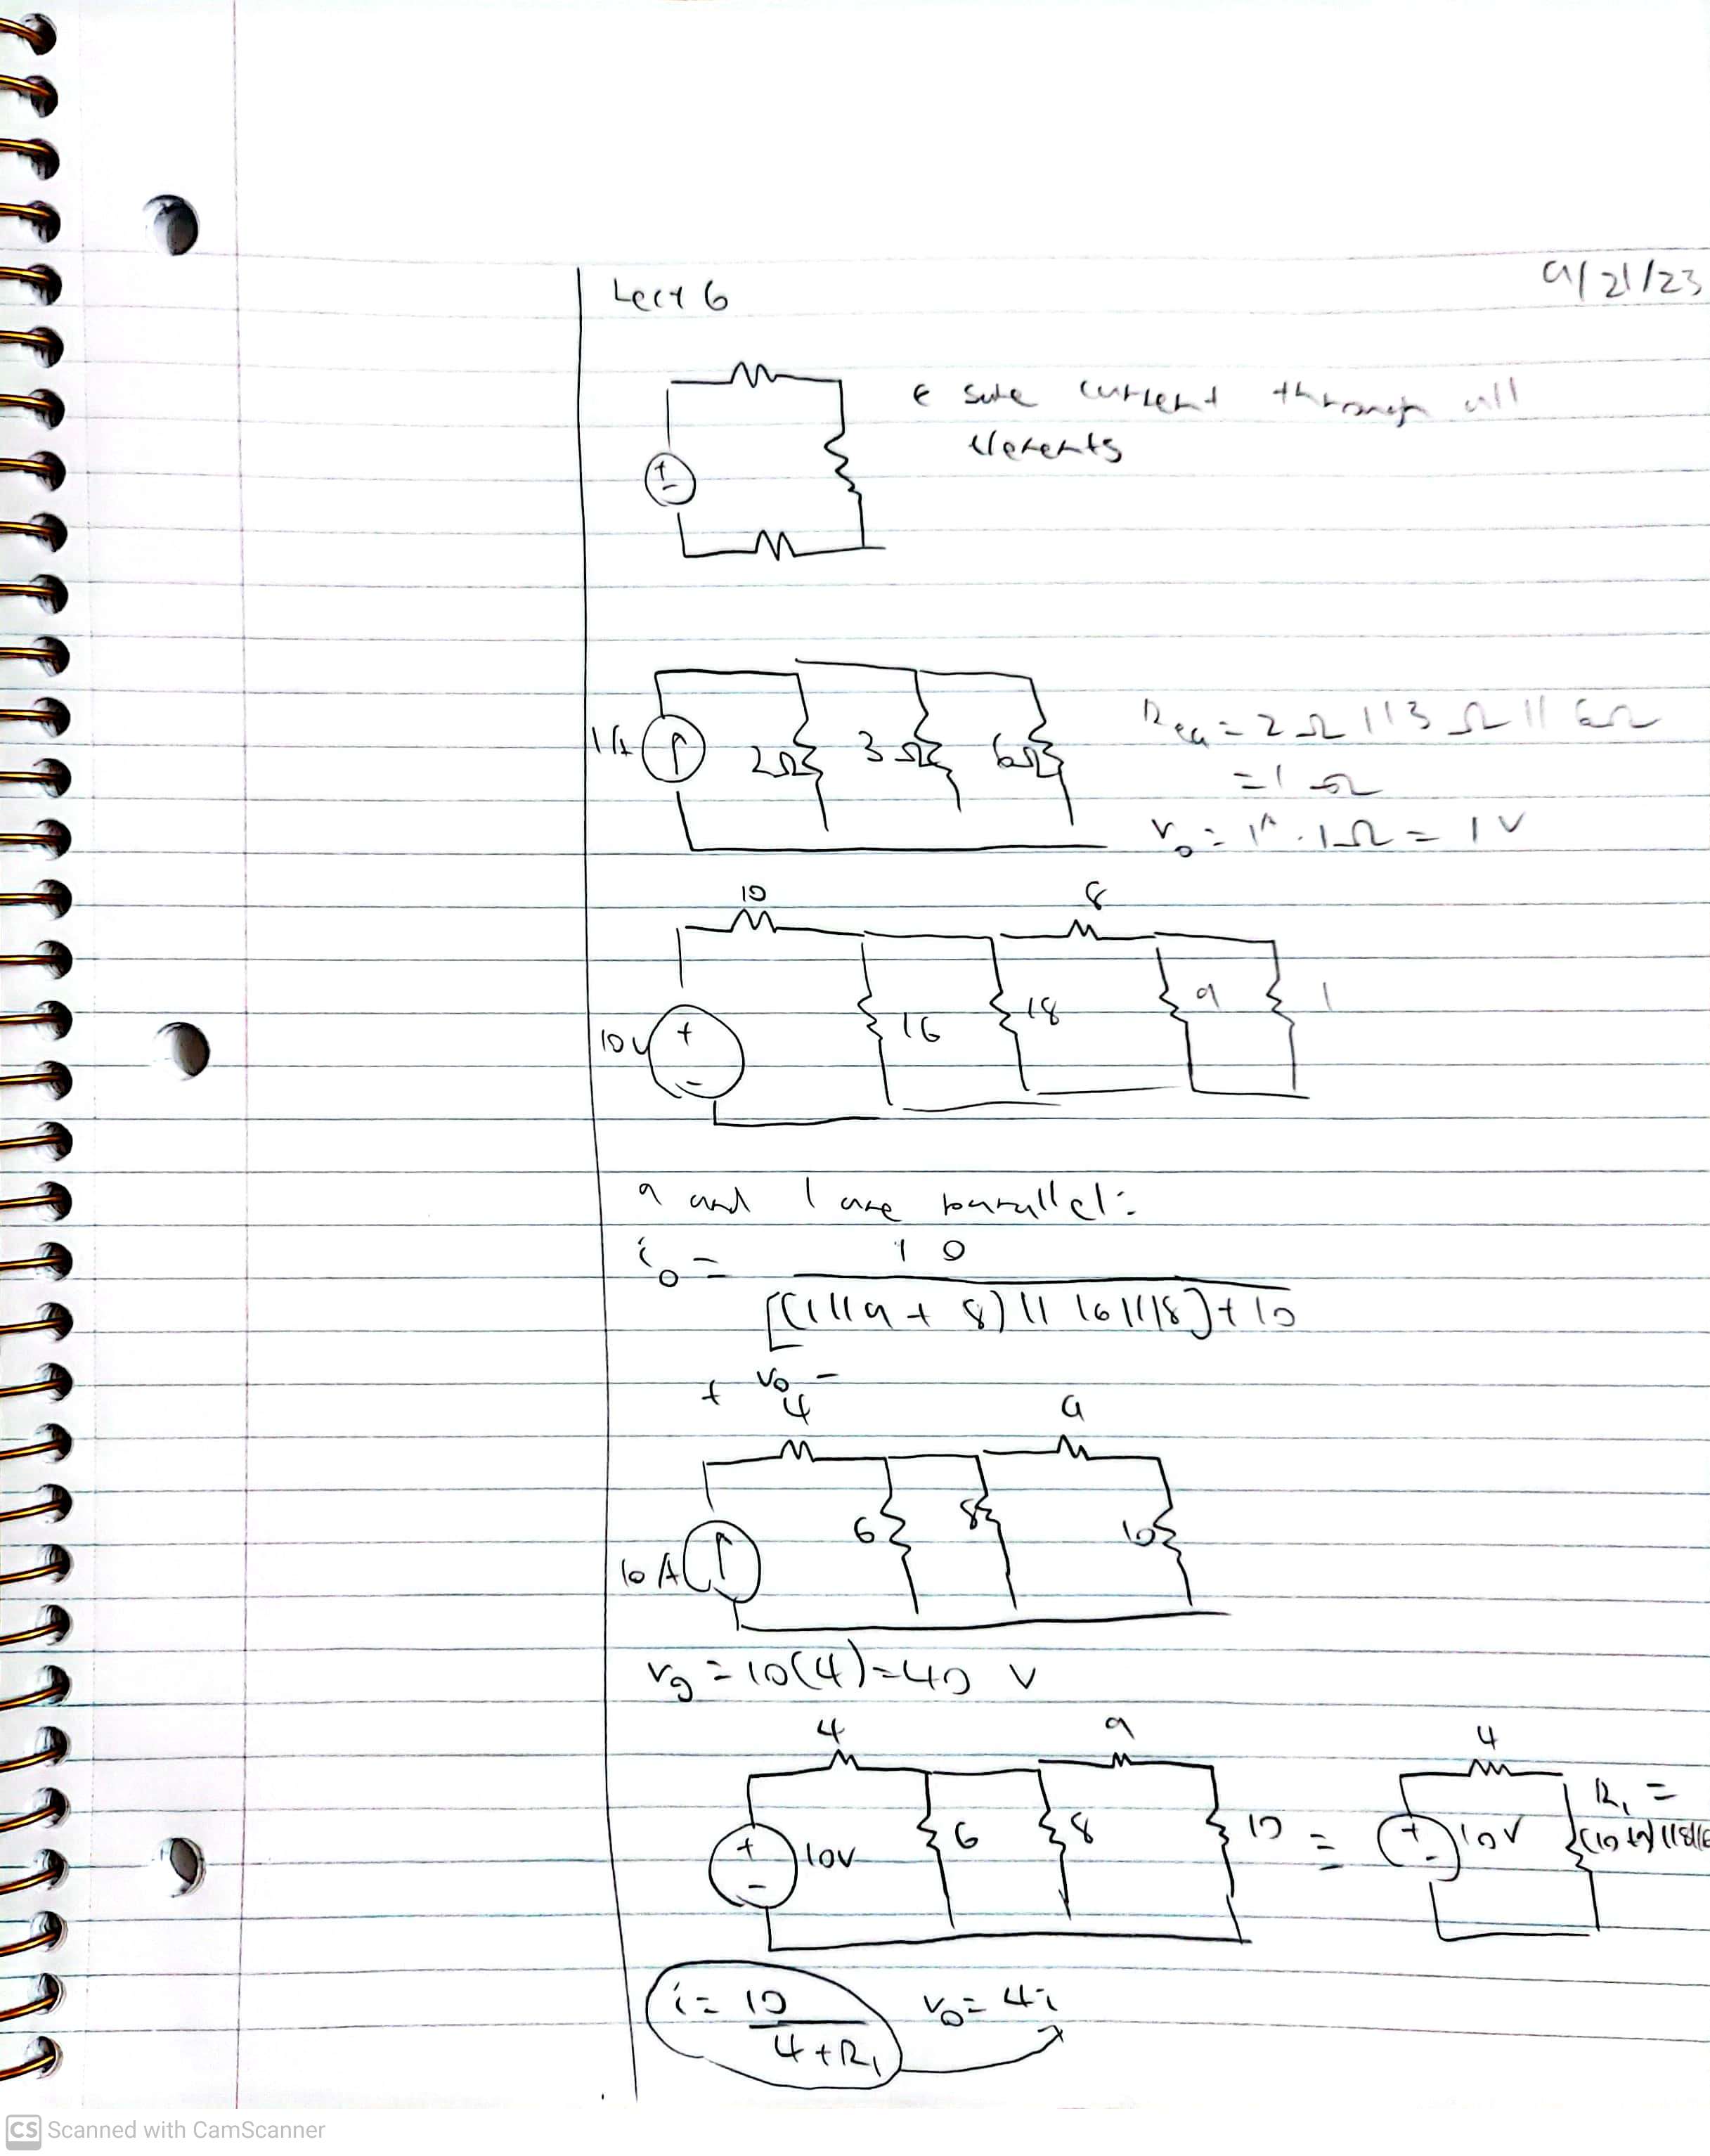 Lect 6
9/21/23
← same current through all
elements
1A
2Ω
3Ω
6Ω
Req = 2Ω||3Ω||6Ω
= 1Ω
v₀ = 1A · 1Ω = 1V
10
8
10V
+
-
16
18
9
1
9 and 1 are parallel:
i₀ = 10
[(1||9 + 8) || 16||18] + 10
+ v₀ -
4
9
10A
6
8
10
v₀ = 10(4) = 40 V
4
9
4
+
-
10V
6
8
10
=
+
-
10V
R₁ =
(10+9)||8||6
i = 10
4+R₁
v₀ = 4i
CS Scanned with CamScanner